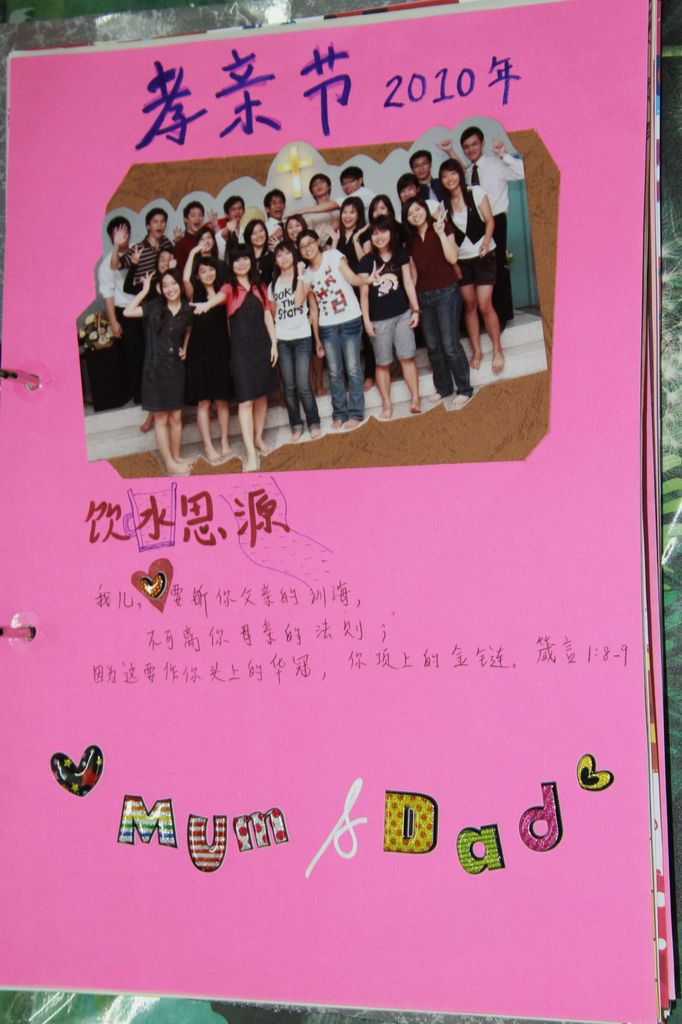 孝亲节 2010年
LOOK
The
Stars
饮水思源
我儿，要听你父亲的训诲，
不可离你母亲的法则；
因为这要作你头上的华冠，你项上的金链。箴言 1:8-9
Mum & Dad